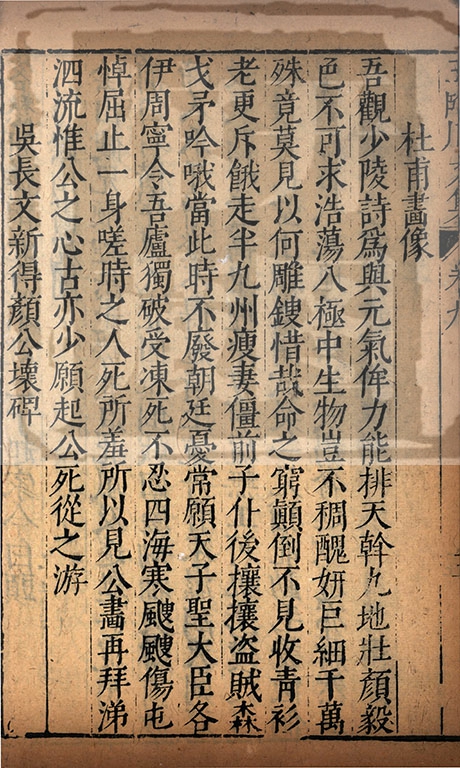 王臨川文集 卷九
杜甫畫像
吾觀少陵詩爲與元氣侔力能排天幹九地壯顏毅
色不可求浩蕩八極中生物豈不稠醜妍巨細千萬
殊竟莫見以何雕鎪惜哉命之窮顛倒不見收青衫
老更斥餓走半九州瘦妻僵前子仆後攘攘盜賊森
戈矛吟哦當此時不廢朝廷憂常願天子聖大臣各
伊周寧令吾廬獨破受凍死不忍四海寒颼颼傷屯
悼屈止一身嗟時之人死所羞所以見公畫再拜涕
泗流惟公之心古亦少願起公死從之游
吳長文新得顏公壞碑